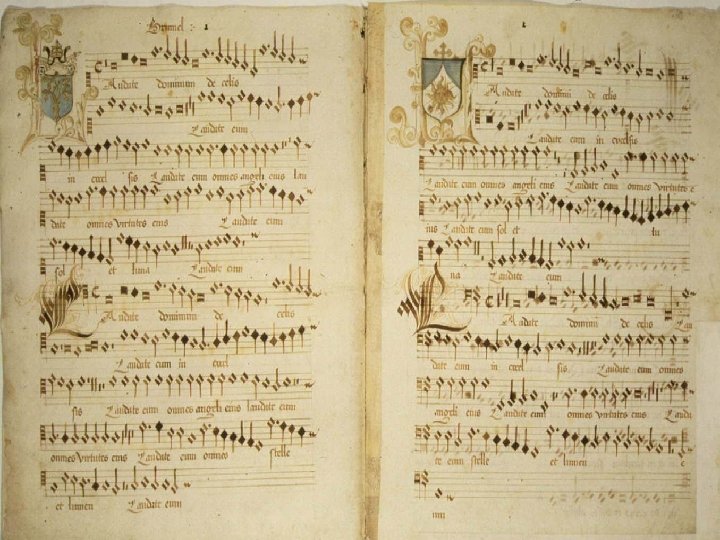 Brumel
Laudate dominum de celis
Laudate eum
in excel sis Laudate eum omnes angeli eius lau
date omnes virtutes eius Laudate eum
sol et luna Laudate eum
Laudate dominum de celis
Laudate eum in excel
sis Laudate eum omnes angeli eius laudate eum
omnes virtutes eius Laudate eum omnes stelle
et lumen Laudate eum
Laudate dominum de celis
Laudate eum in excelsis
Laudate eum omnes angeli eius Laudate eum omnes virtutes e
ius Laudate eum sol et lu
na Laudate eum
Laudate dominum de celis Lau
date eum in excel sis Laudate eum omnes
angeli eius Laudate eum omnes virtutes eius Laudat
te eum stelle et lumen e
um